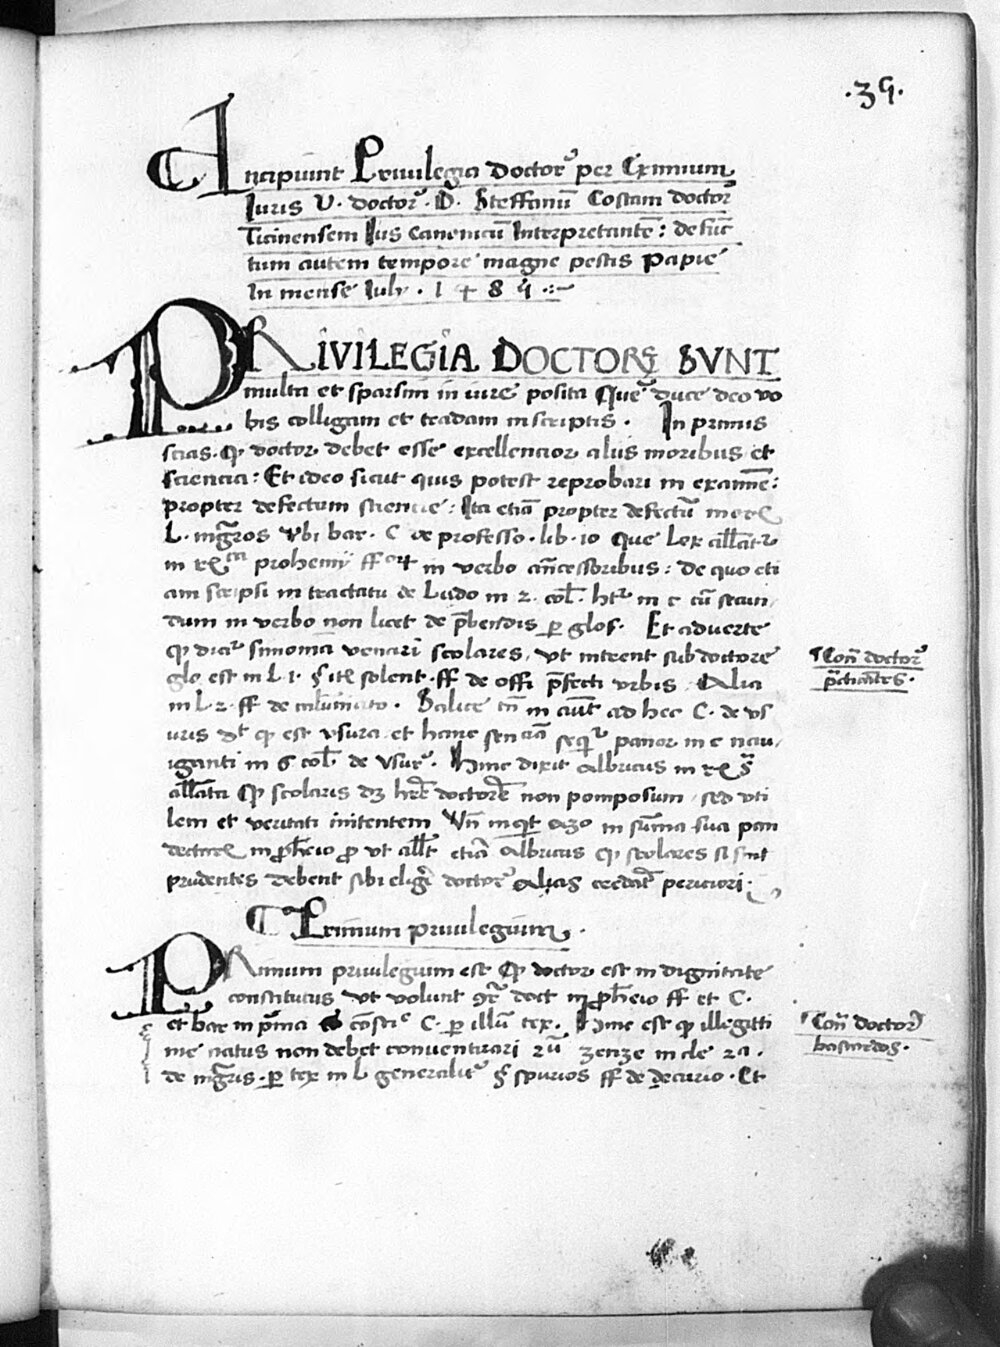 .39.
Incipiunt Privilegia Doctorꝫ per Eximium
Iuris V. doctorꝫ. D. Steffanū Costam doctorꝫ
Ticinensem Ius Canonicū Interpretantē: defūc
tum autem tempore magne pestis Papie
In mense July. 148
PRIVILEGIA DOCTORꝪ SVNT
multa et sparsim in iure posita Que duce deo vo
bis colligam et tradam in scriptis. In primis
scias. ꝙ doctor debet esse excellencior aliis moribus et
sciencia: Et ideo sicut quis potest reprobari in examīe:
propter defectum sciencie: Ita etiā propter defectū morꝫ
L. mgr̄os vbi bar. C de professo. lib. 10 Que Lex allat
in prohemij ff in verbo ancessoribus: de quo eti
am scripsi in tractatu de Ludo in 2. col. in c cū secun
dum in verbo non licet de p̄bendis ꝑ glos. Et adverte
ꝙ dicit simonia venari scolares, vt intrent sub doctore
glo est in L. 1. § solent. ff de offi p̄fecti vrbis. Alia
in L. 2. ff de Salice in ad hec C. de vs
uris ꝙ est vsura et hanc senciam sequit panor in c nau
iganti in 6 col. de vsur. Hinc dixit Albricus in §
allata ꝙ scolaris dꝫ hrē doctorē non pomposum, sed vti
lem et veritati initentem Vn̄ inqt azo in sūma sua pan
in ꝓhēio vt etiā Albricus ꝙ scolares si sint
prudentes debent sibi eligē doctorꝫ Alias credat periciori.
Primum privilegium.
PRimum privilegium est ꝙ doctor est in dignitate
constitutus vt volunt doct in ꝓhēio ff et C.
et bar in p̄ma cōsti C. ꝑ illū tex. Hinc est ꝙ illegitti
me natus non debet conventuari zenze in cle 2a.
de mgr̄is. ꝑ tex in L generaliter § spurios ff de decurio. Et
Con̄ doctorꝫ
Con̄ doctorꝫ
bastardos.